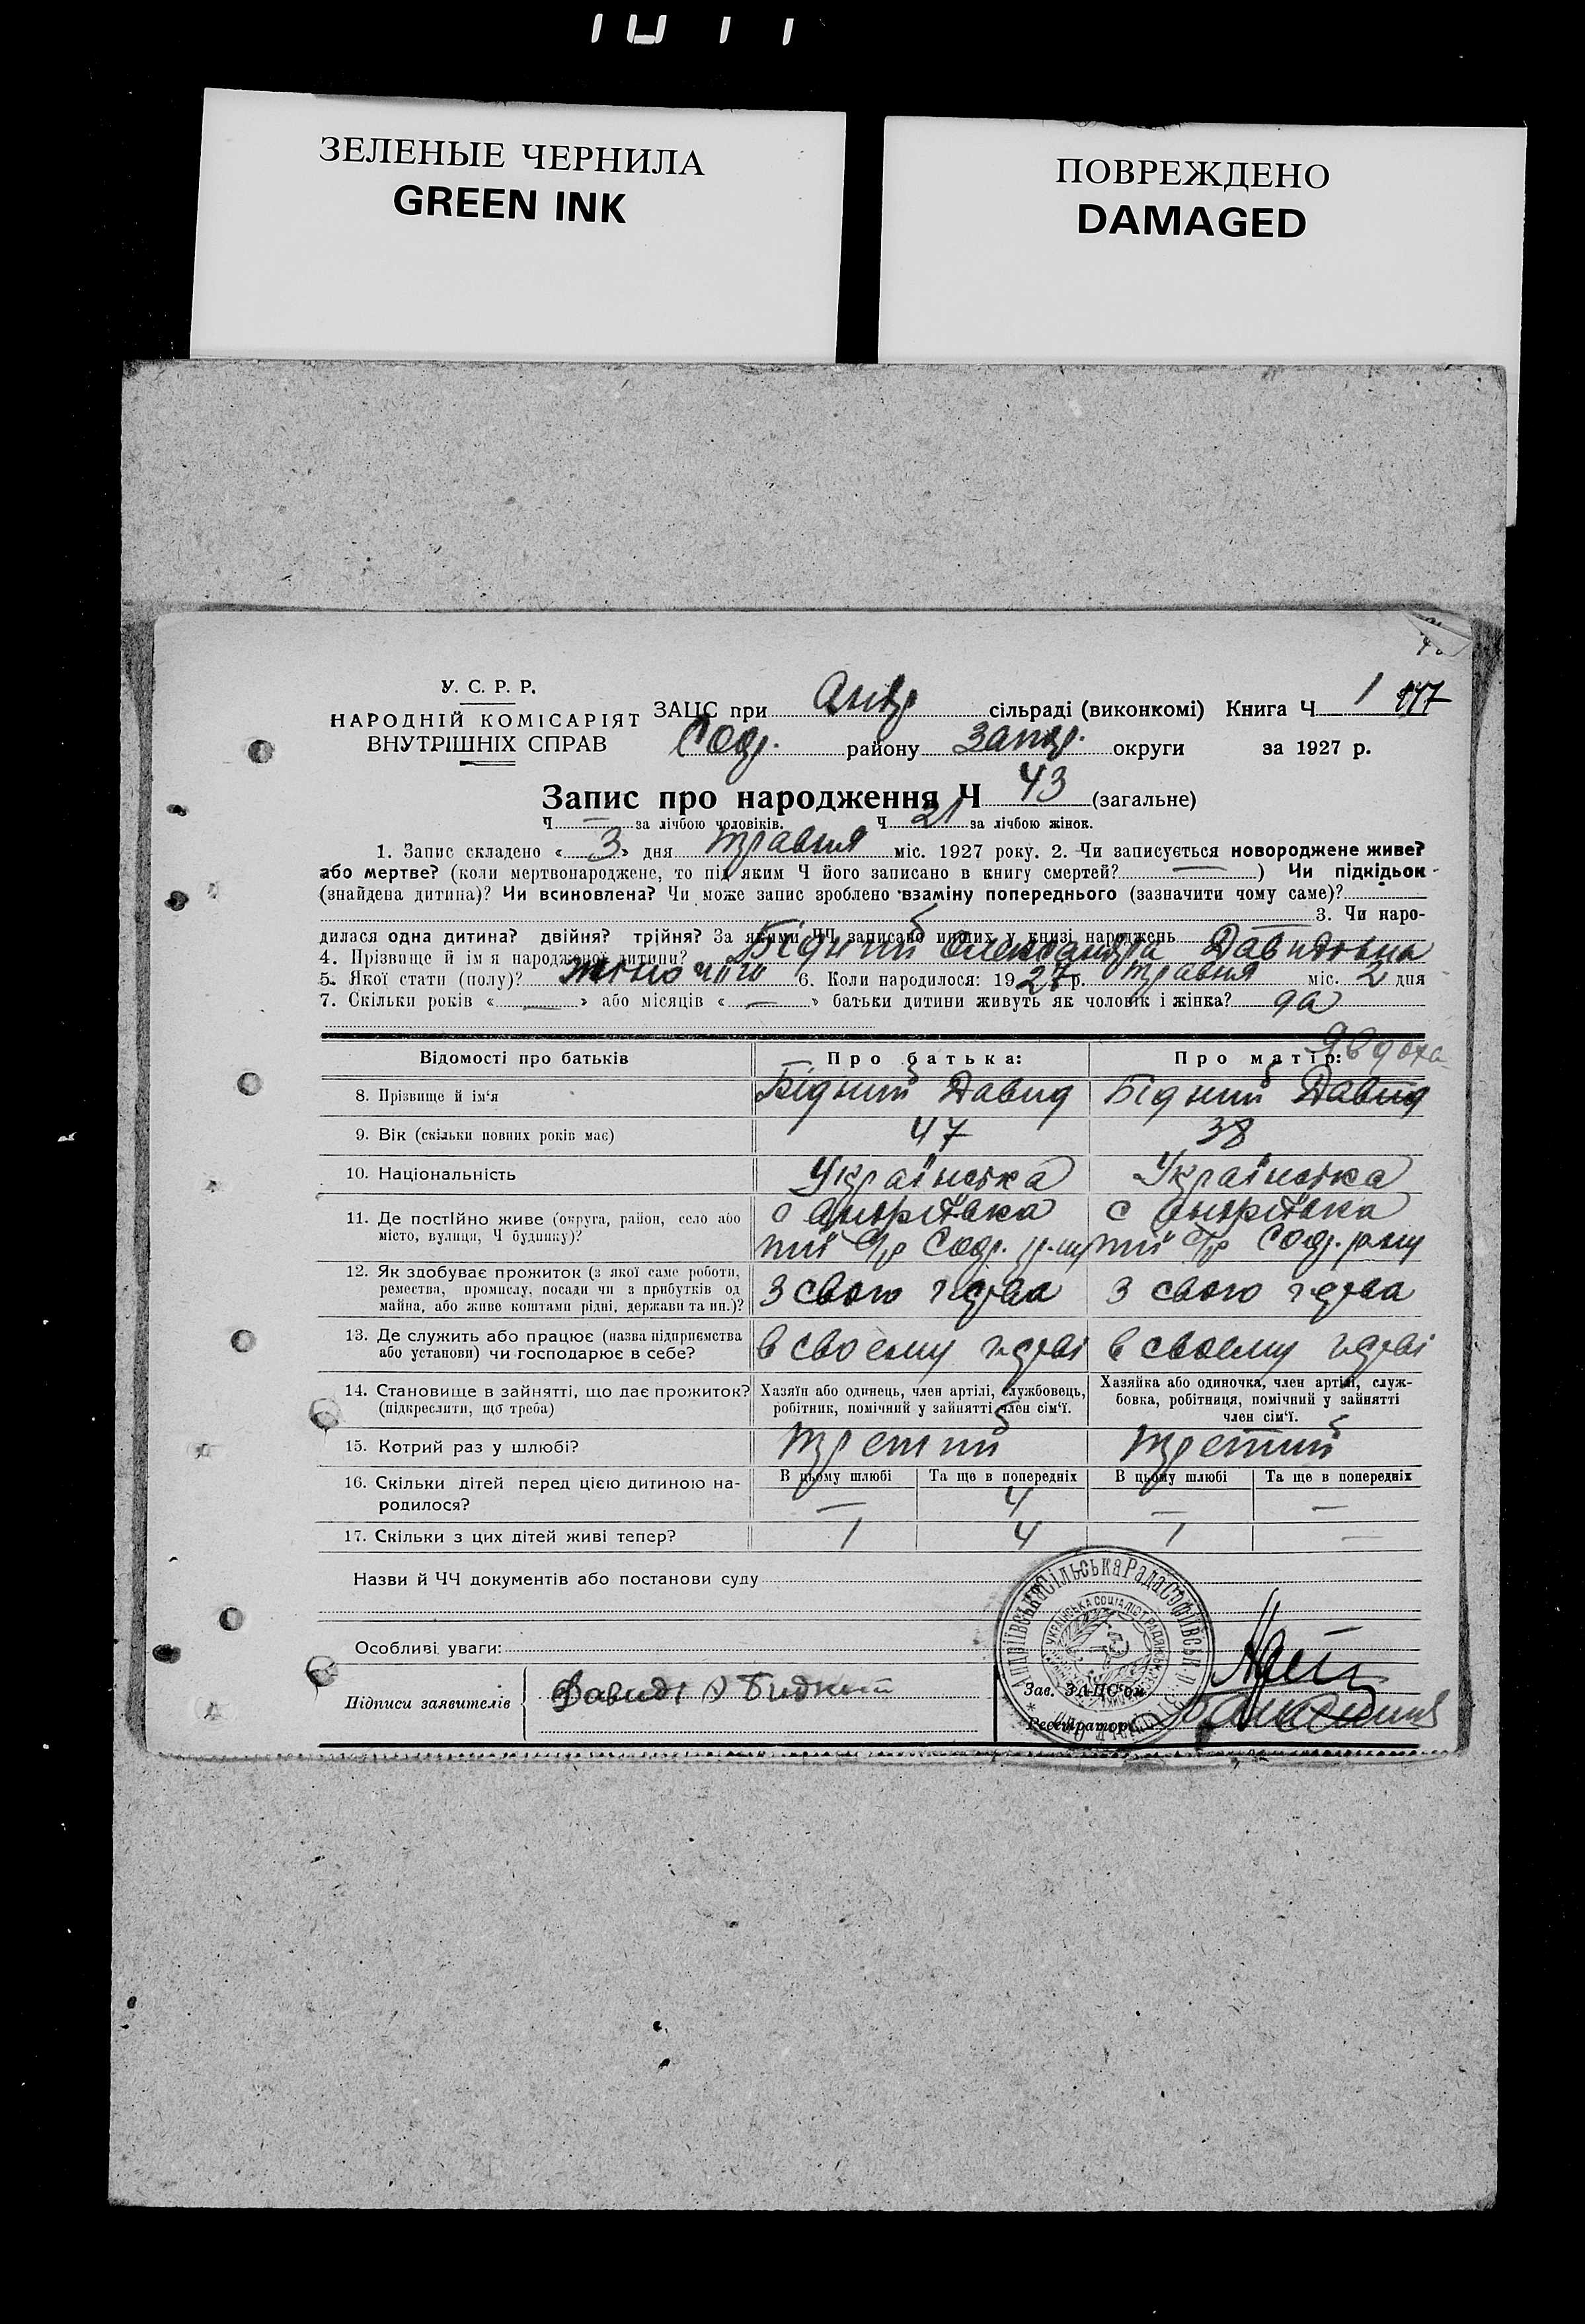 ЗЕЛЕНЫЕ ЧЕРНИЛА
GREEN INK
ПОВРЕЖДЕНО
DAMAGED
У. С. Р. Р.
НАРОДНІЙ КОМІСАРІЯТ
ВНУТРІШНІХ СПРАВ
ЗАЦС при Андр сільраді (виконкомі) Книга Ч 1
Соф. району Запор. округи за 1927 р.
Запис про народження Ч 43 (загальне)
Ч — за лічбою чоловіків. Ч 21 за лічбою жінок.
1. Запис складено « 3 » дня травня міс. 1927 року. 2. Чи записується новороджене живе?
або мертве? (коли мертвонароджене, то під яким Ч його записано в книгу смертей? — ) Чи підкідьок
(знайдена дитина)? Чи всиновлена? Чи може запис зроблено взаміну попереднього (зазначити чому саме)?
3. Чи наро-
дилася одна дитина? двійня? трійня? За якими ЧЧ записано инших у книзі народжень —
4. Прізвище й ім'я народженої дитини? Бідний Олександра Давидовна
5. Якої стати (полу)? жіночої 6. Коли народилося: 1927 р. травня міс. 2 дня
7. Скільки років « — » або місяців « — » батьки дитини живуть як чоловік і жінка? да
Відомості про батьків Про батька: Про матір: Явдоха
8. Прізвище й ім'я Бідний Давид Бідний Давид
9. Вік (скільки повних років має) 47 38
10. Національність Українська Українська
11. Де постійно живе (округа, район, село або
місто, вулиця, Ч будинку)?
с Андріївка с Андріївка
тії с/р Соф. р-ну тії с/р Соф. р-ну
12. Як здобуває прожиток (з якої саме роботи,
ремества, промислу, посади чи з прибутків од
майна, або живе коштами рідні, держави та ин.)?
З свого г-дрва З свого г-дрва
13. Де служить або працює (назва підприємства
або установи) чи господарює в себе?
в своєму г-дрві в своєму г-дрві
14. Становище в зайнятті, що дає прожиток?
(підкреслити, що треба)
Хазяїн або одинець, член артілі, службовець,
робітник, помічний у зайнятті член сім'ї.
Хазяйка або одиночка, член артілі, служ-
бовка, робітниця, помічний у зайнятті
член сім'ї.
15. Котрий раз у шлюбі? третий третий
16. Скільки дітей перед цією дитиною на-
родилося?
В цьому шлюбі Та ще в попередніх В цьому шлюбі Та ще в попередніх
— 4 — —
17. Скільки з цих дітей живі тепер? 1 4 1 —
Назви й ЧЧ документів або постанови суду
Особливі уваги:
Підписи заявителів Давид Бидний
Зав. ЗАЦС'ом
Реєстратор
Андріївська Сільська Рада Софіївськ